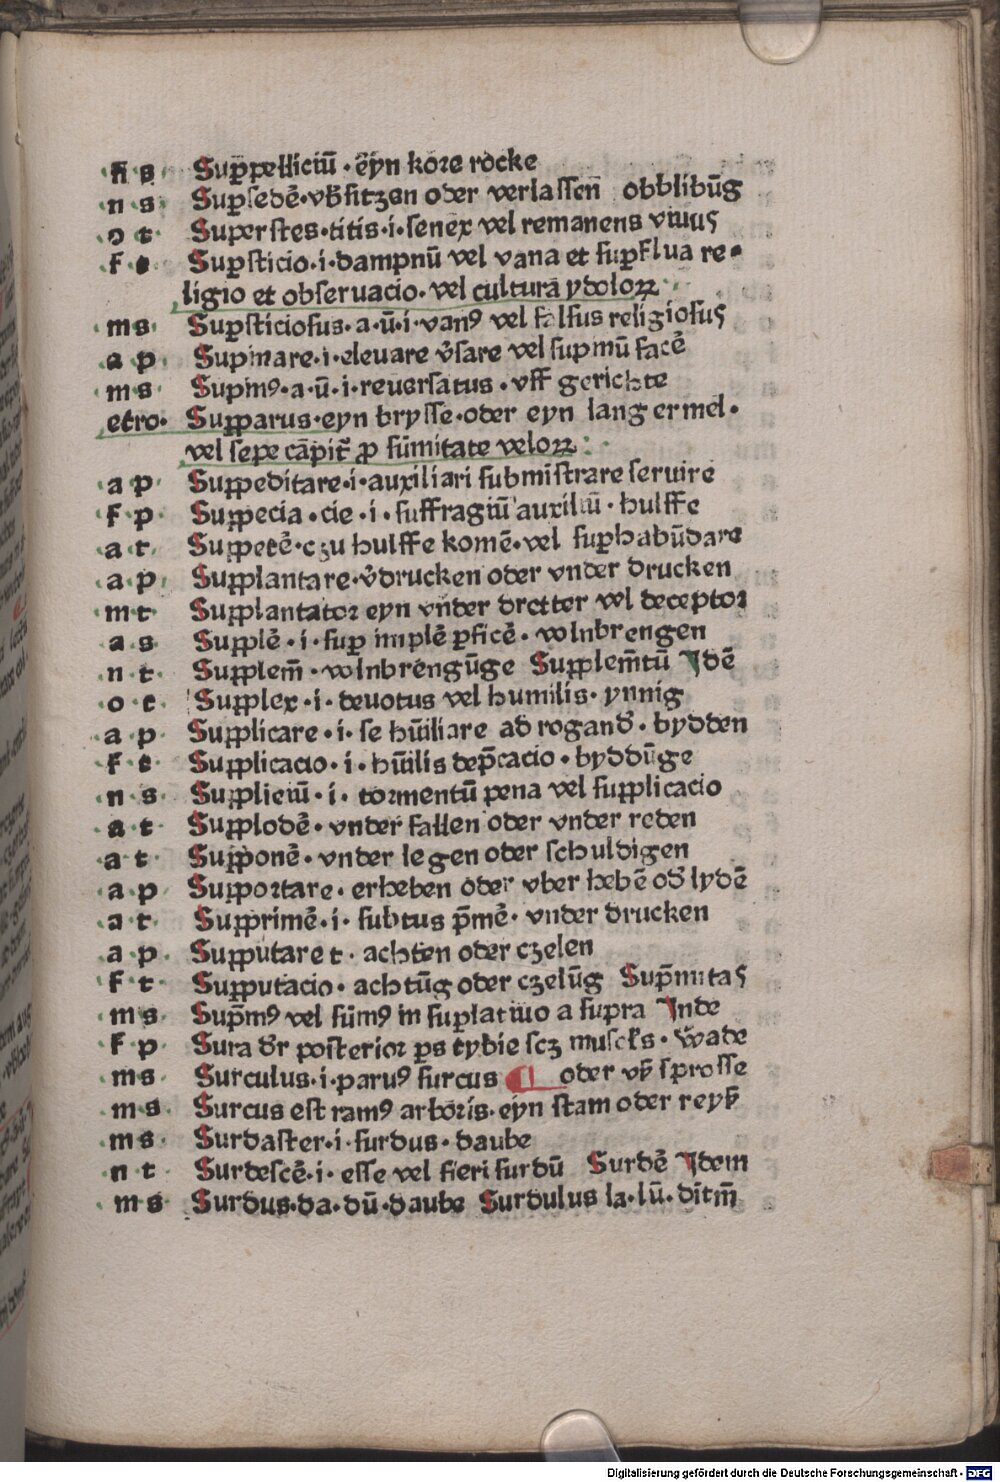 n s Supꝑpelliciū · eyn kore rocke
n s Suꝑsedē · vb̄sitzen oder verlassen̄ obblibūg
o t Superstes · titis · i · senex vel remanens viuus
f t Suꝑsticio · i · dampnū vel vana et suꝑflua re-
ligio et obseruacio · vel culturā ydoloꝝ
m s Suꝑsticiosus · a · ū · i · vanꝰ vel falsus religiosus
a p Supinare · i · eleuare v̄sare vel supinū facē
m s Supinꝰ · a · ū · i · reuersatus · vff gerichte
etro · Suꝑparus · eyn brysse · oder eyn lang ermel ·
vel sepe cāpit̄ ꝓ sūmitate veloꝝ
a p Suꝑpeditare · i · auxiliari submistrare seruire
f p Suꝑpecia · cie · i · suffragiū auxiliū · hulffe
a t Suꝑpetē · czu hulffe komē · vel suꝑhabūdare
a p Suꝑplantare · v̄drucken oder vnder drucken
m t Suꝑplantator eyn vn̄der dretter vel deceptor
a s Suꝑplē · i · suꝑ implē ꝑficē · volnbrengen
n t Suꝑplem̄ · volnbrengūge Suꝑplem̄tū Idē
o t Suꝑplex · i · deuotus vel humilis · ynnig
a p Suꝑplicare · i · se hūiliare ad rogand̄ · bydden
f t Suꝑplicacio · i · hūilis dep̄cacio · byddūge
n s Suꝑpliciū · i · tormentū pena vel suꝑplicacio
a t Suꝑplodē · vnder fallen oder vnder reden
a t Suꝑponē · vnder legen oder schuldigen
a p Suꝑportare · erheben oder vber hebē od̄ lydē
a t Suꝑprimē · i · subtus p̄mē · vnder drucken
a p Suꝑputare t · achten oder czelen
f t Suꝑputacio · achtūg oder czelūg Sup̄mitas
m s Sup̄mꝰ vel sūmꝰ in suꝑlatiuo a supra Inde
f p Sura d̄r posterior ꝑs tybie scz muscl̄s · Wade
m s Surculus · i · paruꝰ surcus ¶ oder vp̄ sprosse
m s Surcus est ramꝰ arboris · eyn stam oder reyß
m s Surdaster · i · surdus · daube
n t Surdescē · i · esse vel fieri surdū Surdē Idem
m s Surdus · da · dū · daube Surdulus la · lū · ditm̄
Digitalisierung gefördert durch die Deutsche Forschungsgemeinschaft - DFG